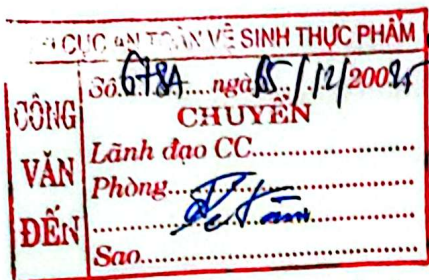 CỤC AN TOÀN VỆ SINH THỰC PHẨM
CÔNG VĂN ĐẾN
Số.678A....ngày 15../.12/2005
CHUYỂN
Lãnh đạo CC
Phòng
Sao